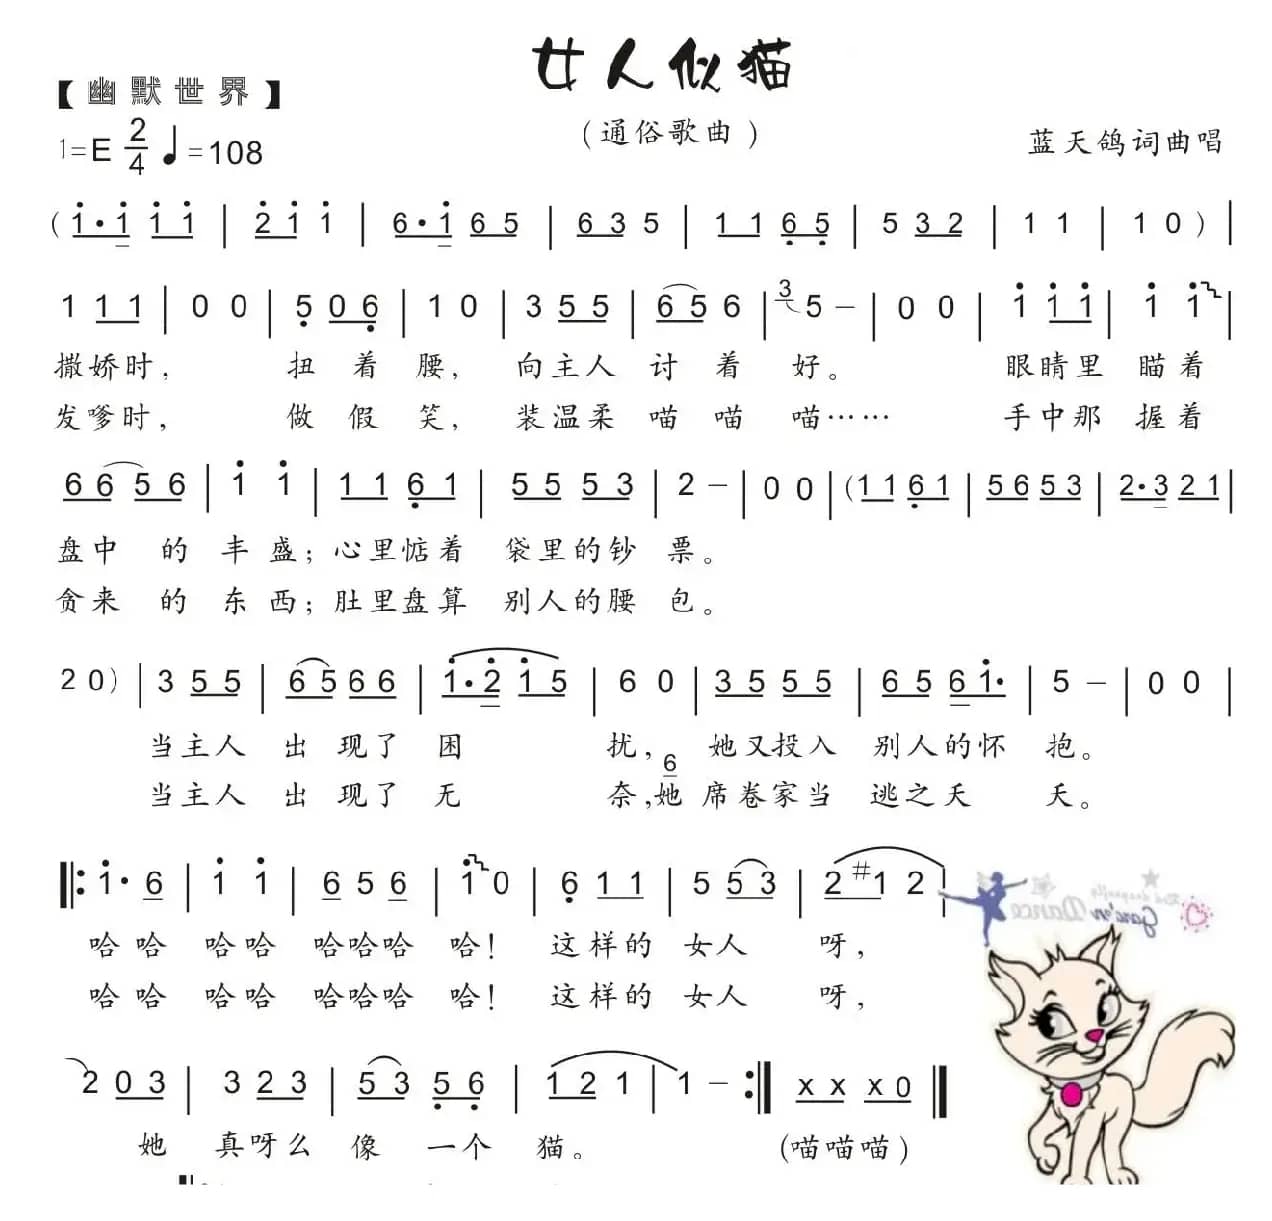 女人似猫
【幽默世界】
(通俗歌曲)
1=E 2/4 ♩=108
蓝天鸽词曲唱
(1·1 1 1 | 2 1 1 | 6·1 6 5 | 6 3 5 | 1 1 6 5 | 5 3 2 | 1 1 | 1 0) |
1 1 1 | 0 0 | 5 0 6 | 1 0 | 3 5 5 | 6 5 6 | 3 5 – | 0 0 | 1 1 1 | 1 1 |
撒娇时, 扭着腰, 向主人讨着好。 眼睛里瞄着
发嗲时, 做假笑, 装温柔喵喵喵…… 手中那握着
6 6 5 6 | 1 1 | 1 1 6 1 | 5 5 5 3 | 2 – | 0 0 | (1 1 6 1 | 5 6 5 3 | 2·3 2 1 |
盘中的丰盛; 心里惦着袋里的钞票。
贪来的东西; 肚里盘算别人的腰包。
2 0) | 3 5 5 | 6 5 6 6 | 1·2 1 5 | 6 0 | 3 5 5 5 | 6 5 6 1· | 5 – | 0 0 |
当主人出现了困扰, 她又投入别人的怀抱。
6
当主人出现了无奈, 她席卷家当逃之夭夭。
‖: 1·6 | 1 1 | 6 5 6 | 1 0 | 6 1 1 | 5 5 3 | 2 #1 2 |
哈哈哈哈哈哈哈哈! 这样的女人呀,
哈哈哈哈哈哈哈哈! 这样的女人呀,
2 0 3 | 3 2 3 | 5 3 5 6 | 1 2 1 | 1 – :‖ X X X 0 ‖
她真呀么像一个猫。 (喵喵喵)